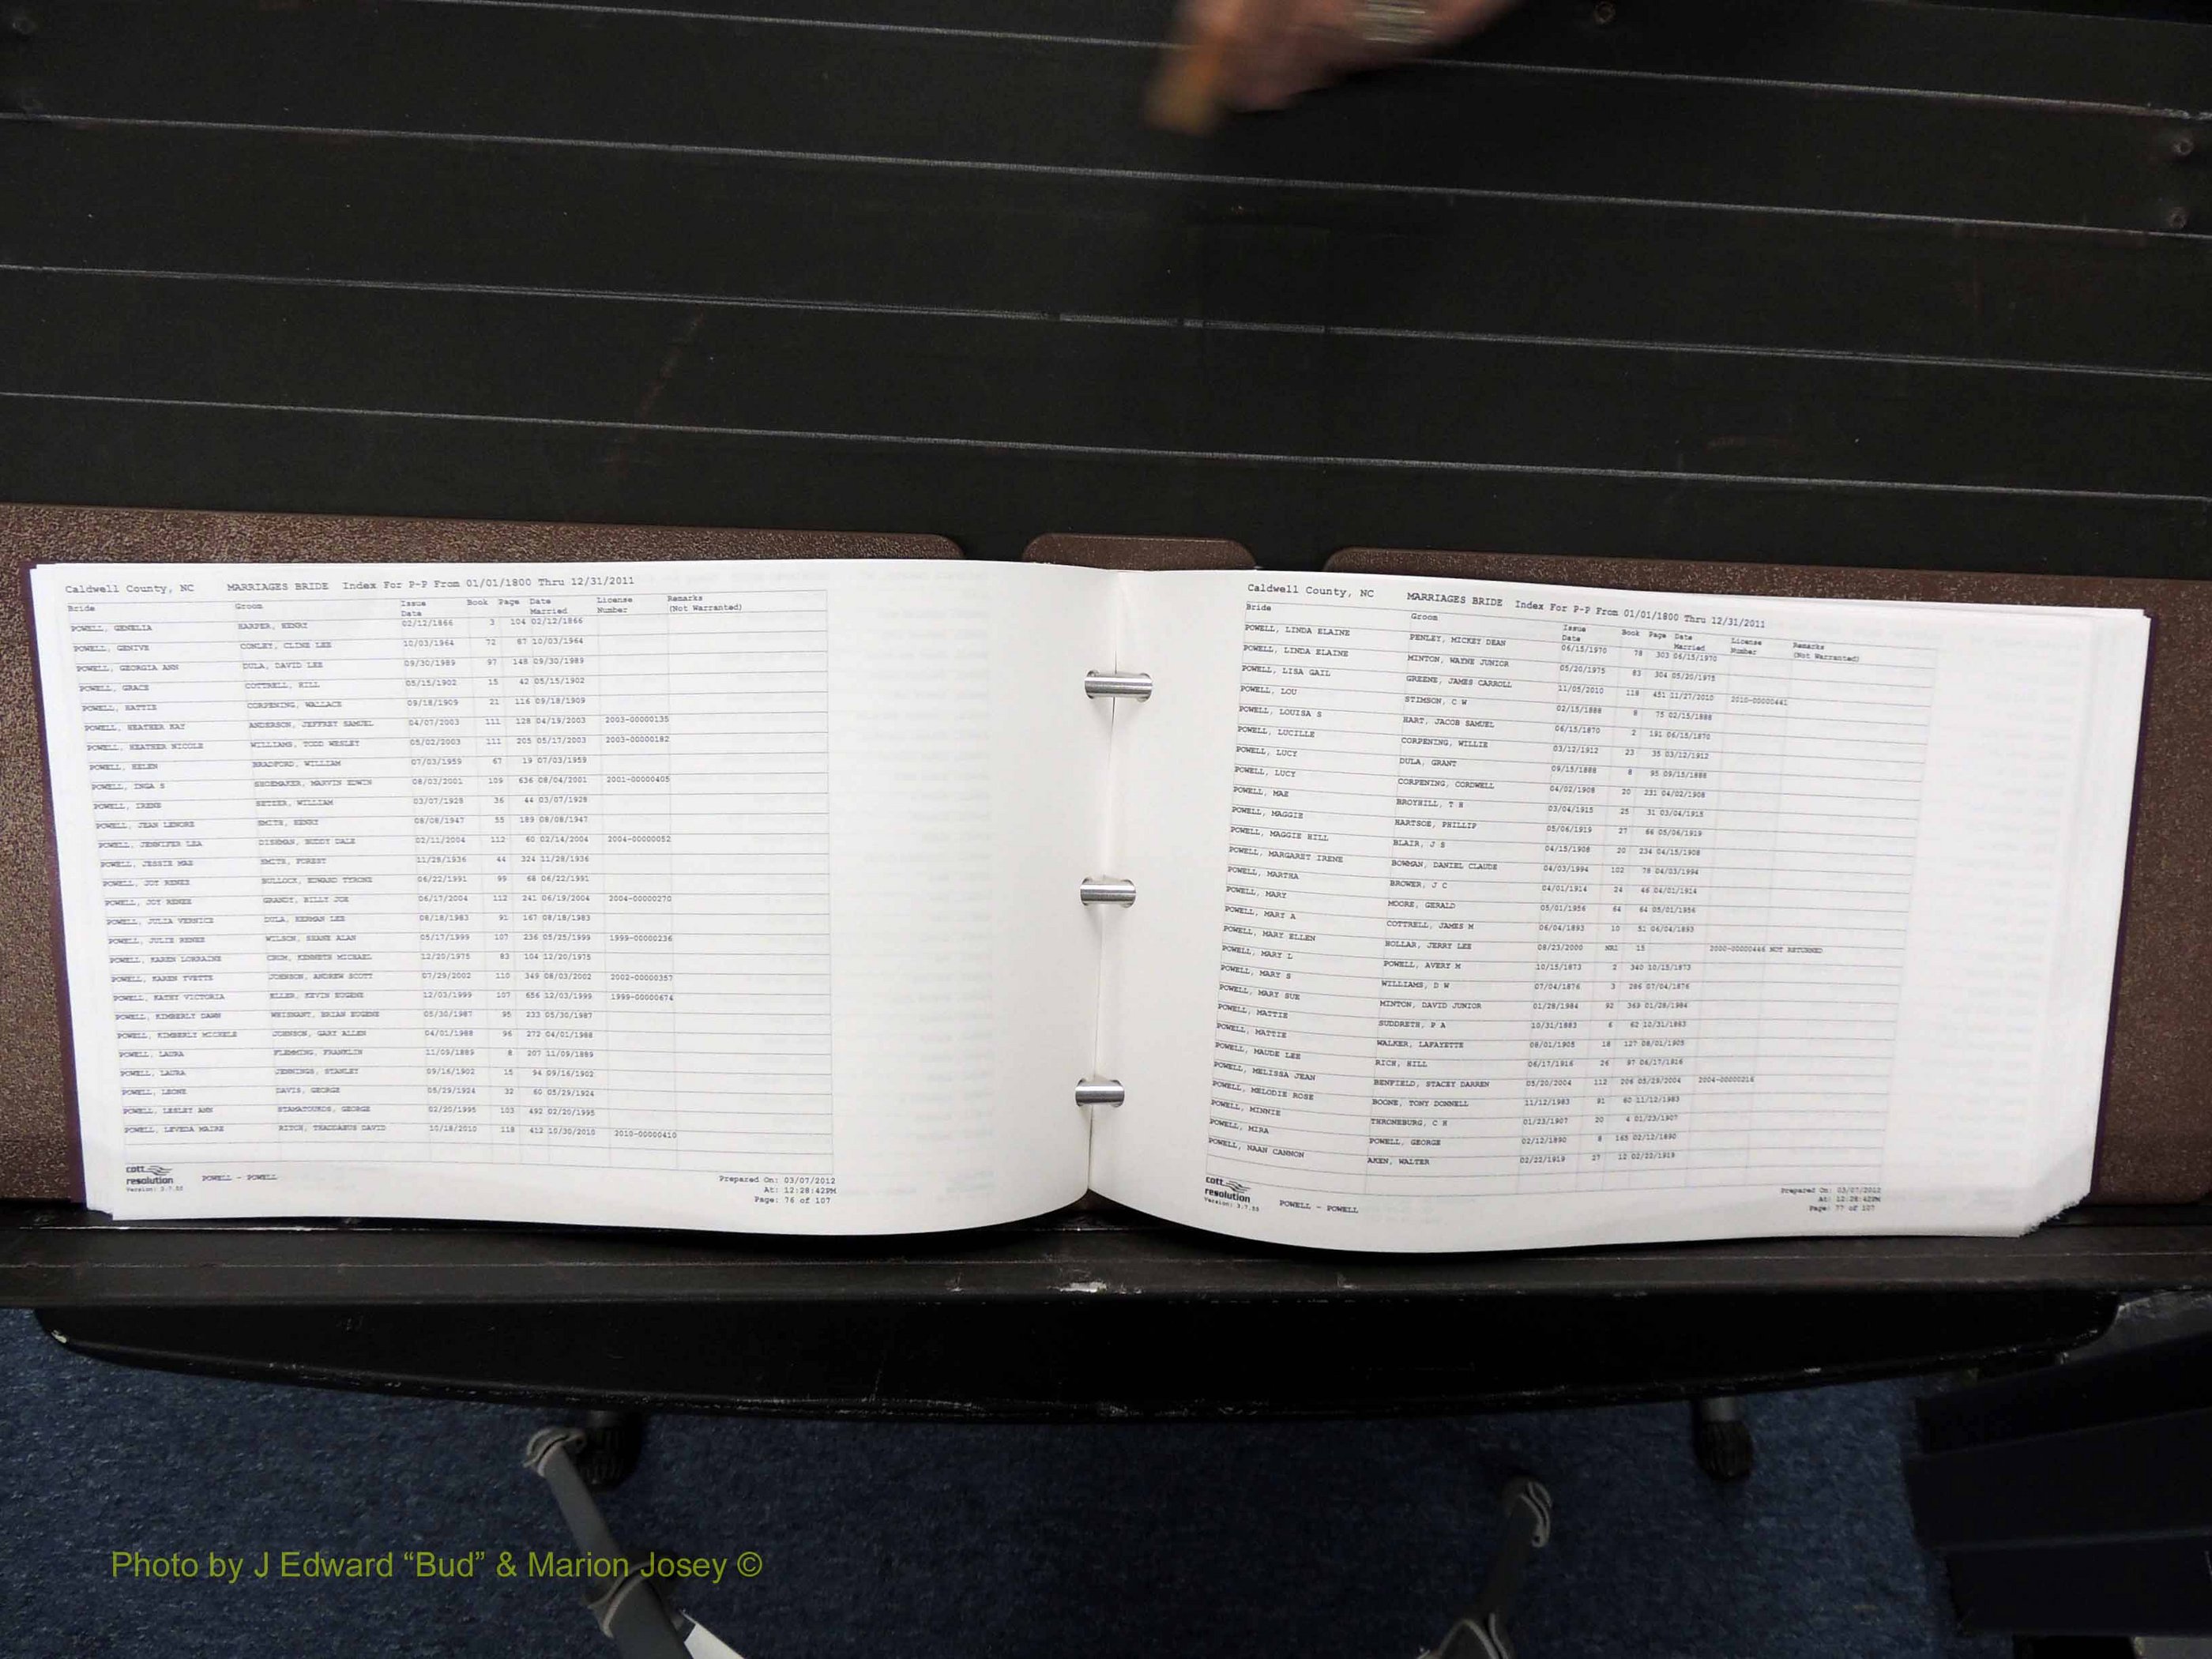 Caldwell County, NC MARRIAGES BRIDE Index For P-P From 01/01/1800 Thru 12/31/2011
Bride Groom Issue Date Book Page Date Married License Number Remarks (Not Warranted)
POWELL, GENELIA HARPER, HENRY 02/12/1866 3 104 02/12/1866
POWELL, GENIVE CONLEY, CLINE LEE 10/03/1964 72 87 10/03/1964
POWELL, GEORGIA ANN DULA, DAVID LEE 09/30/1989 97 148 09/30/1989
POWELL, GRACE COTTRELL, HILL 05/15/1902 15 42 05/15/1902
POWELL, HATTIE CORPENING, WALLACE 09/18/1909 21 116 09/18/1909
POWELL, HEATHER KAY ANDERSON, JEFFREY SAMUEL 04/07/2003 111 128 04/19/2003 2003-00000135
POWELL, HEATHER NICOLE WILLIAMS, TODD WESLEY 05/02/2003 111 205 05/17/2003 2003-00000182
POWELL, HELEN BRADFORD, WILLIAM 07/03/1959 67 19 07/03/1959
POWELL, INGA S SHOEMAKER, MARVIN EDWIN 08/03/2001 109 636 08/04/2001 2001-00000405
POWELL, IRENE SETZER, WILLIAM 03/07/1928 36 44 03/07/1928
POWELL, JEAN LENORE SMITH, HENRY 08/08/1947 55 189 08/08/1947
POWELL, JENNIFER LEA DISHMAN, BUDDY DALE 02/11/2004 112 60 02/14/2004 2004-00000052
POWELL, JESSIE MAE SMITH, FOREST 11/28/1936 44 324 11/28/1936
POWELL, JOY RENEE BULLOCK, EDWARD TYRONE 06/22/1991 99 68 06/22/1991
POWELL, JOY RENEE GRANDY, BILLY JOE 06/17/2004 112 241 06/19/2004 2004-00000270
POWELL, JULIA VERNICE DULA, HERMAN LEE 08/18/1983 91 167 08/18/1983
POWELL, JULIE RENEE WILSON, SHANE ALAN 05/17/1999 107 236 05/25/1999 1999-00000236
POWELL, KAREN LORRAINE CROM, KENNETH MICHAEL 12/20/1975 83 104 12/20/1975
POWELL, KAREN YVETTE JOHNSON, ANDREW SCOTT 07/29/2002 110 349 08/03/2002 2002-00000357
POWELL, KATHY VICTORIA ELLER, KEVIN EUGENE 12/03/1999 107 656 12/03/1999 1999-00000674
POWELL, KIMBERLY DAWN WHISNANT, BRIAN EUGENE 05/30/1987 95 233 05/30/1987
POWELL, KIMBERLY MICHELE JOHNSON, GARY ALLEN 04/01/1988 96 272 04/01/1988
POWELL, LAURA FLEMMING, FRANKLIN 11/09/1889 8 207 11/09/1889
POWELL, LAURA JENNINGS, STANLEY 09/16/1902 15 94 09/16/1902
POWELL, LEONE DAVIS, GEORGE 05/29/1924 32 60 05/29/1924
POWELL, LESLEY ANN STAMATOUKOS, GEORGE 02/20/1995 103 492 02/20/1995
POWELL, LEVEDA MAIRE RITCH, THADDAEUS DAVID 10/18/2010 118 412 10/30/2010 2010-00000410
cott resolution Version: 3.7.53
POWELL - POWELL
Prepared On: 03/07/2012
At: 12:28:42PM
Page: 76 of 107
Caldwell County, NC MARRIAGES BRIDE Index For P-P From 01/01/1800 Thru 12/31/2011
Bride Groom Issue Date Book Page Date Married License Number Remarks (Not Warranted)
POWELL, LINDA ELAINE PENLEY, MICKEY DEAN 06/15/1970 78 303 06/15/1970
POWELL, LINDA ELAINE MINTON, WAYNE JUNIOR 05/20/1975 83 304 05/20/1975
POWELL, LISA GAIL GREENE, JAMES CARROLL 11/05/2010 118 451 11/27/2010 2010-00000441
POWELL, LOU STIMSON, C W 02/15/1888 8 75 02/15/1888
POWELL, LOUISA S HART, JACOB SAMUEL 06/15/1870 2 191 06/15/1870
POWELL, LUCILLE CORPENING, WILLIE 03/12/1912 23 35 03/12/1912
POWELL, LUCY DULA, GRANT 09/15/1888 8 95 09/15/1888
POWELL, LUCY CORPENING, CORDWELL 04/02/1908 20 231 04/02/1908
POWELL, MAE BROYHILL, T H 03/04/1915 25 31 03/04/1915
POWELL, MAGGIE HARTSOE, PHILLIP 05/06/1919 27 66 05/06/1919
POWELL, MAGGIE HILL BLAIR, J S 04/15/1908 20 234 04/15/1908
POWELL, MARGARET IRENE BOWMAN, DANIEL CLAUDE 04/03/1994 102 78 04/03/1994
POWELL, MARTHA BROWER, J C 04/01/1914 24 46 04/01/1914
POWELL, MARY MOORE, GERALD 05/01/1956 64 64 05/01/1956
POWELL, MARY A COTTRELL, JAMES M 06/04/1893 10 51 06/04/1893
POWELL, MARY ELLEN HOLLAR, JERRY LEE 08/23/2000 NR1 15 2000-00000446 NOT RETURNED
POWELL, MARY L POWELL, AVERY M 10/15/1873 2 340 10/15/1873
POWELL, MARY S WILLIAMS, D W 07/04/1876 3 286 07/04/1876
POWELL, MARY SUE MINTON, DAVID JUNIOR 01/28/1984 92 363 01/28/1984
POWELL, MATTIE SUDDRETH, P A 10/31/1883 6 62 10/31/1883
POWELL, MATTIE WALKER, LAFAYETTE 08/01/1905 18 127 08/01/1905
POWELL, MAUDE LEE RICH, HILL 06/17/1916 26 97 06/17/1916
POWELL, MELISSA JEAN BENFIELD, STACEY DARREN 05/20/2004 112 206 05/29/2004 2004-00000216
POWELL, MELODIE ROSE BOONE, TONY DONNELL 11/12/1983 91 60 11/12/1983
POWELL, MINNIE THRONEBURG, C H 01/23/1907 20 4 01/23/1907
POWELL, MIRA POWELL, GEORGE 02/12/1890 8 165 02/12/1890
POWELL, NAAN CANNON AKEN, WALTER 02/22/1919 27 12 02/22/1919
cott resolution Version: 3.7.53
POWELL - POWELL
Prepared On: 03/07/2012
At: 12:28:42PM
Page: 77 of 107
Photo by J Edward “Bud” & Marion Josey ©